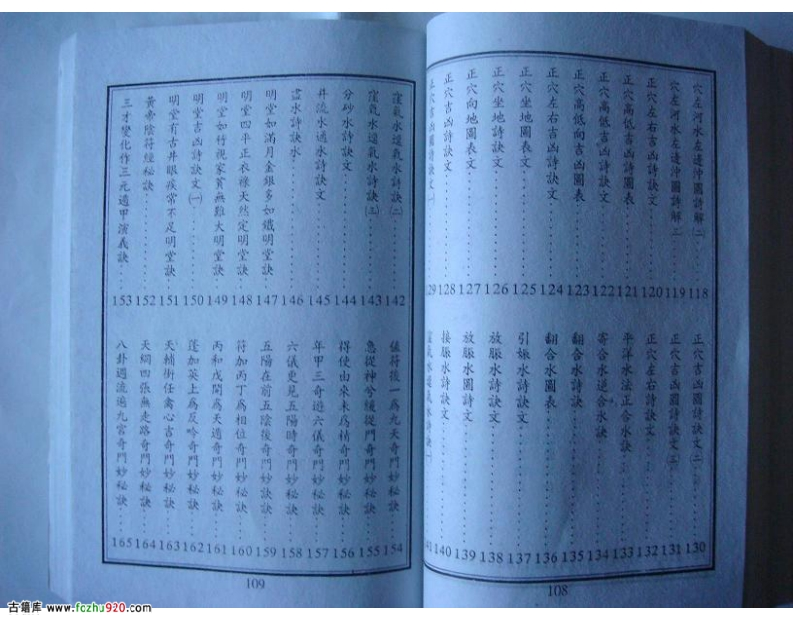 穴左河水左邊沖圖詩解(二)
118
穴左河水左邊沖圖詩解
119
正穴左右吉凶詩訣文
120
正穴高低吉凶詩圖表
121
正穴高低吉凶詩訣文
122
正穴高低向吉凶圖表
123
正穴左右吉凶詩訣文
124
正穴坐地圖表
125
正穴坐地詩訣文
126
正穴向地圖表
127
正穴吉凶詩訣文
128
正穴吉凶圖詩訣文
129
正穴吉凶圖詩訣文
130
正穴吉凶圖詩訣文
131
正穴左右詩訣文
132
平洋水法正合水訣
133
寄合水逆合水訣
134
翻合水詩訣
135
翻合水圖表
136
引脈水詩訣文
137
放脈水詩訣文
138
放脈水圖詩文
139
接脈水詩訣文
140
窪氣水還氣水詩訣
141
108
窪氣水還氣水詩訣(二)
142
窪氣水還氣水詩訣(三)
143
分砂水詩訣文
144
井流水過水詩訣文
145
盪水詩訣水
146
明堂如滿月金銀多如鐵明堂訣
147
明堂四平正衣祿天然定明堂訣
148
明堂如竹視家貧無難大明堂訣
149
明堂吉凶詩訣文(一)
150
明堂有古井眼疾常不足明堂訣
151
黃帝陰符經秘訣
152
三才變化作三元遁甲演義訣
153
值符後一為九天奇門妙秘訣
154
急從神兮緩從門奇門妙秘訣
155
得使由來未為精奇門妙秘訣
156
年甲三奇遊六儀奇門妙秘訣
157
六儀更見五陽時奇門妙秘訣
158
五陽在前五陰後奇門妙訣訣
159
符加丙丁為相位奇門妙秘訣
160
丙和戊開為天遁奇門妙秘訣
161
蓬加英上為反吟奇門妙秘訣
162
天輔衝任禽心吉奇門妙秘訣
163
天網四張無走路奇門妙秘訣
164
八卦週流遍九宮奇門妙秘訣
165
109
古籍库 www.fczhu920.com